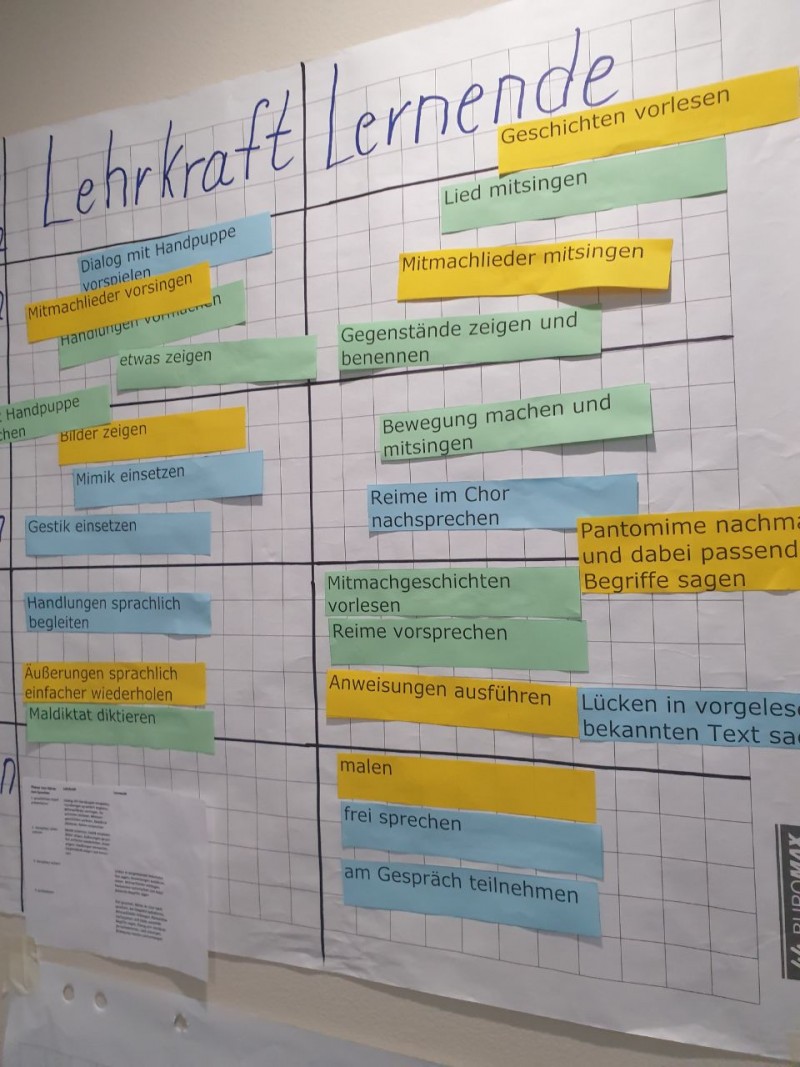 Lehrkraft
Lernende
Dialog mit Handpuppe
vorspielen
Mitmachlieder vorsingen
Handlungen vormachen
etwas zeigen
Handpuppe
Bilder zeigen
Mimik einsetzen
Gestik einsetzen
Handlungen sprachlich
begleiten
Äußerungen sprachlich
einfacher wiederholen
Maldiktat diktieren
Geschichten vorlesen
Lied mitsingen
Mitmachlieder mitsingen
Gegenstände zeigen und
benennen
Bewegung machen und
mitsingen
Reime im Chor
nachsprechen
Pantomime
und dabei
Begriffe sagen
Mitmachgeschichten
vorlesen
Reime vorsprechen
Anweisungen ausführen
Lücken in
bekannten Text
malen
frei sprechen
am Gespräch teilnehmen
BUROMAX